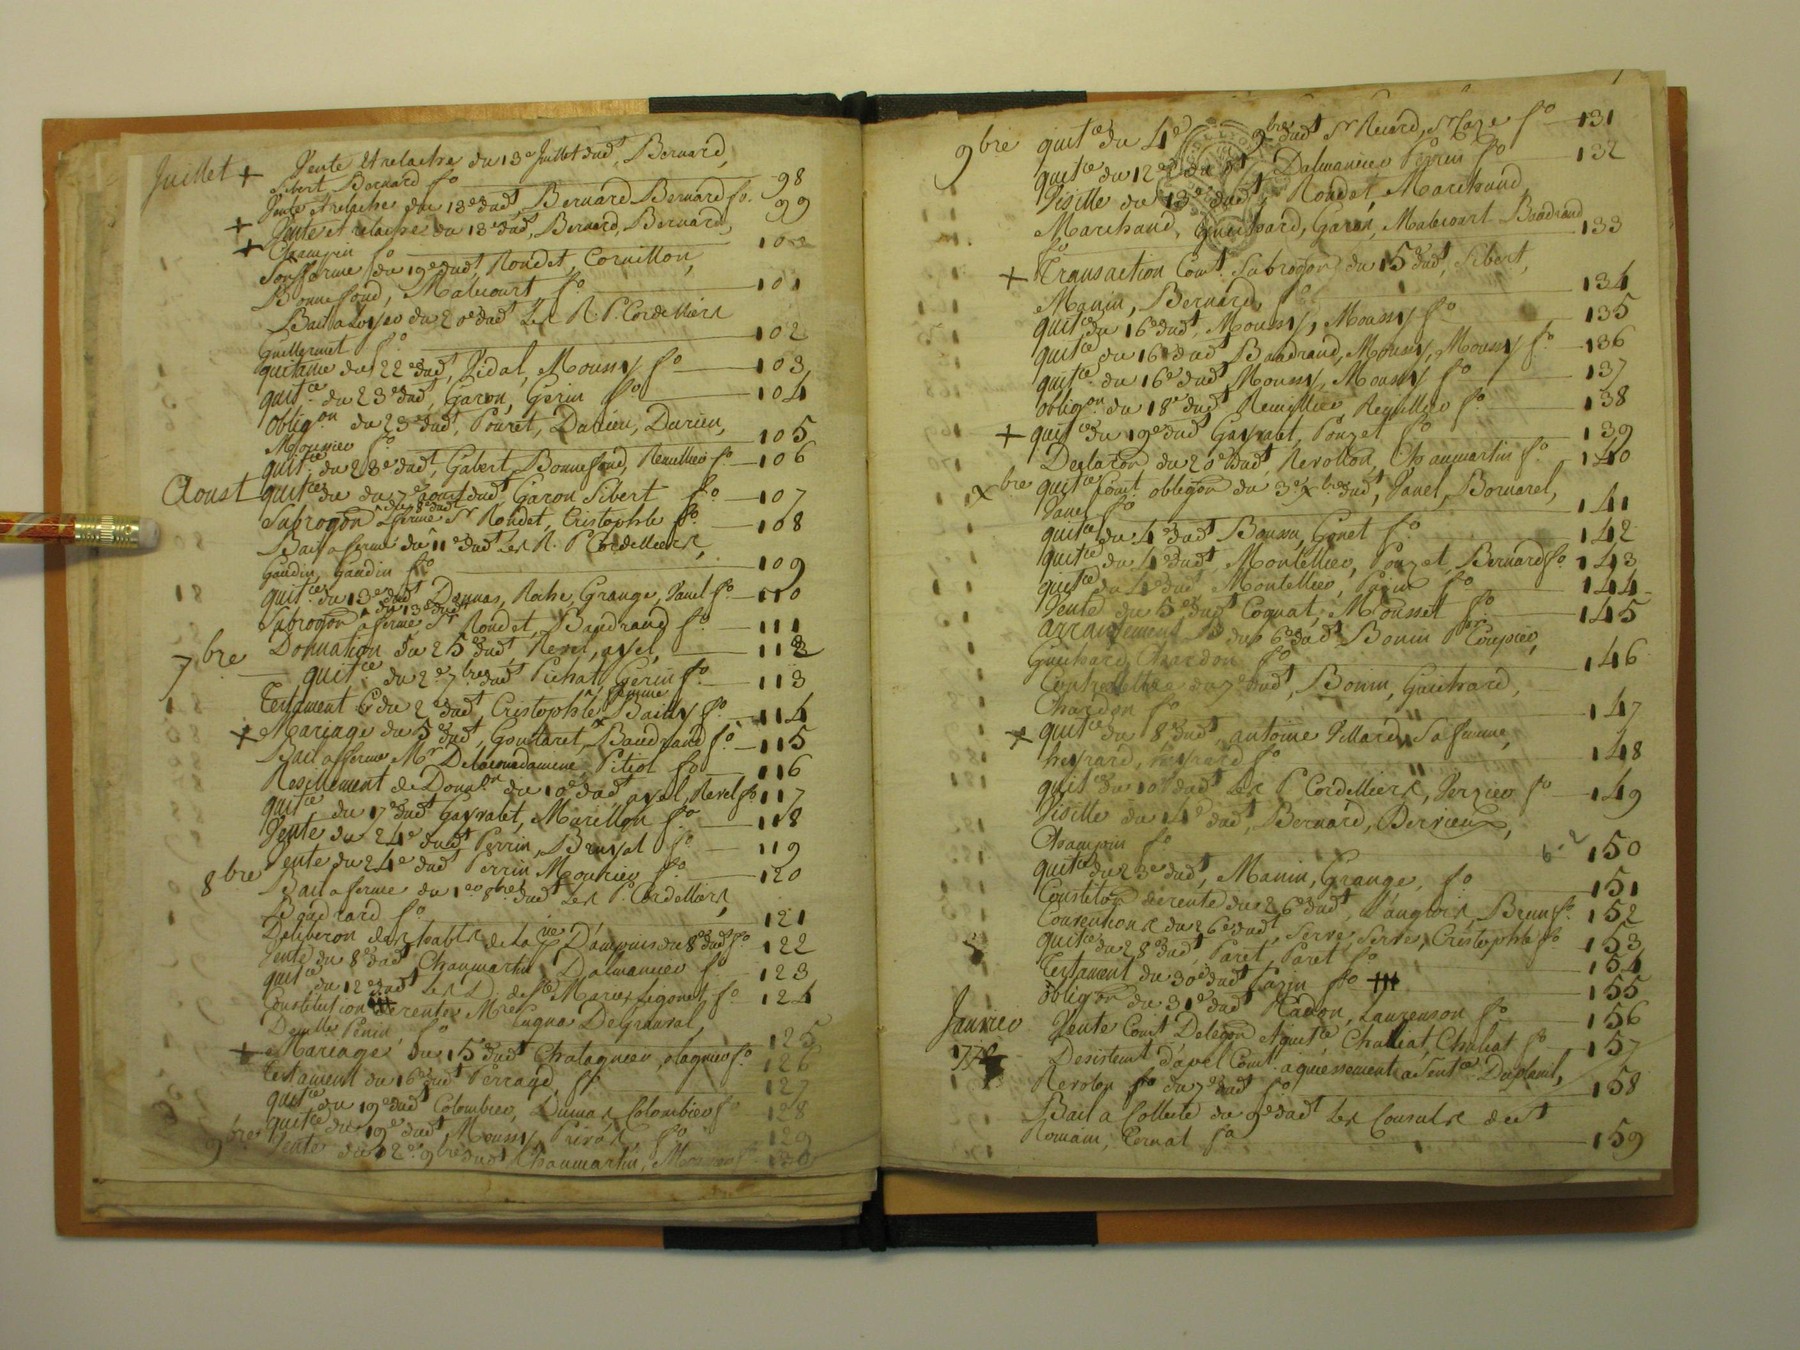 Juillet + Vente et relache du 13e Juillet dudt, Bernard,
Sibert Bernard fo 98
Vente et relache du 13e dudt, Bernard Bernard fo. 99
+ Vente et relache du 13e dudt, Bernard, Bernard,
+ Champin fo 100
Sousferme du 19e dudt, Rondet, Cornillon,
Bonnefond, Malecourt fo 101
Bail a loyer du 20e dudt Les R. P. Cordelliers
Guillermet fo 102
quittance du 22e dudt, Vidal, Moussy fo 103
quitce du 23e dudt, Garon, Gerin fo 104
obligon du 23e dudt, Pouret, Durieu, Durieu,
Mounier fo 105
quitce du 28e dudt, Gabert, Bonnefond, Remillier fo 106
Aoust quitce du 7e aoust dudt, Garon Sibert fo 107
du 8e dudt
Subrogon a ferme Sr Rondet, Cristophle fo 108
Bail a ferme du 11e dudt Les R. P. Cordelliers,
Gaudin, Gaudin fo 109
quitce du 13e dudt Dennas, Roche Grange, Janel fo 110
du 13e dudt
Subrogon a ferme Sr Rondet, Baudrand fo 111
Donnation du 25e dudt Revel, avel, 112
7bre quitce du 2e 7bre dudt Pichat Gerin fo 113
femme
Testament du 2e dudt Cristophle Bailly fo 114
+ Mariage du 5e dudt, Goutaret, Baudrand fo 115
Bail a ferme Mr Delacouadamene Pitiot fo 116
Resiliement de Donaon du 10e dudt avel, Revel fo 117
quitce du 17e dudt Gayvalet, Marillon fo 118
Vente du 24e dudt Perrin, Brunal fo 119
Vente du 24e dudt Perrin Mounier fo 120
8bre Bail a ferme du 1er 8bre dudt Les P. Cordelliers,
Baudrand fo 121
Deliberon des habts de la pse D'ampuis du 8e dudt fo 122
Vente du 8e dudt Chaumartin Dalmancier fo 123
quitce du 12e dudt Les D. de Ste Marie, Legonet fo 124
Constitution de rente, Mre Cugna De Grauval,
Penin fo 125
+ Mariage du 15e dudt Chatagnier, elagnier fo 126
Testament du 16e dudt Perraud fo 127
quitce du 19e dudt Colombier, Dumas Colombier fo 128
quitce du 19e dudt, Moussy, Privas fo 129
9bre Vente du 2e 9bre dudt Chaumartin, fo 130
9bre quitce du 4e 9bre dudt Sr Ricard, Sr Laze fo 131
quitce du 12e dudt Dalmancier Perrin fo 132
Visitte du 13e dudt, Rondet, Marchand,
Marchand, Guichard, Garon, Malecourt Baudrand
fo 133
+ Transaction Cont. Subrogon du 15e dudt, Sibert,
Manin, Bernard, fo 134
quitce du 16e dudt, Moussy, Moussy fo 135
quitce du 16e dudt Baudrand, Moussy, Moussy fo 136
quitce du 16e dudt Moussy, Moussy fo 137
obligon du 18e dudt Remillier, Remillier fo 138
+ quitce du 19e dudt Gayvalet, Pouzet fo 139
Declaron du 20e dudt, Revollon, Chaumartin fo 140
xbre quitce Cont. obligon du 3e xbre dudt, Janel, Bornarel,
Janel fo 141
quitce du 4e dudt Boussu, Gonet fo 142
quitce du 4e dudt Montellier, Pouzet, Bernard fo 143
quitce du 4e dudt Montellier, fo 144
Vente du 5e dudt Cognat, Mousset fo 145
arrantement du 6e dudt Bonin Per Coupier,
Guichard Chardon fo 146
Contrelettre du 7e dudt, Bonin, Guichard,
Chardon fo 147
+ quitce du 8e dudt antoine Villard, Sa femme,
heyrard, heyrard fo 148
quitce du 10e dudt Les P. Cordelliers, Verzier fo 149
Visitte du 14e dudt, Bernard, Dervieux,
Champin fo 150
quitce du 23e dudt, Manin, Grange, fo 151
Constiton de rente du 26e dudt, Langlois, Brun fo. 152
Conventions du 26e dudt Serve, Serve, Cristophle fo 153
quitce du 28e dudt, Paret, Paret fo 154
Testament du 30e dudt fo 155
obligon du 31e dudt Radon, Laurenson fo 156
Janvier Vente Cont Delegon et quitce Chaleat, Chaleat fo 157
Desistemt d'apel Cont. aquiessement a Sentce Duplanil,
Revolon fo du 7e dudt fo 158
Bail a Collecte du 9e dudt Les Consuls de St
Romain, Ternat fo 159